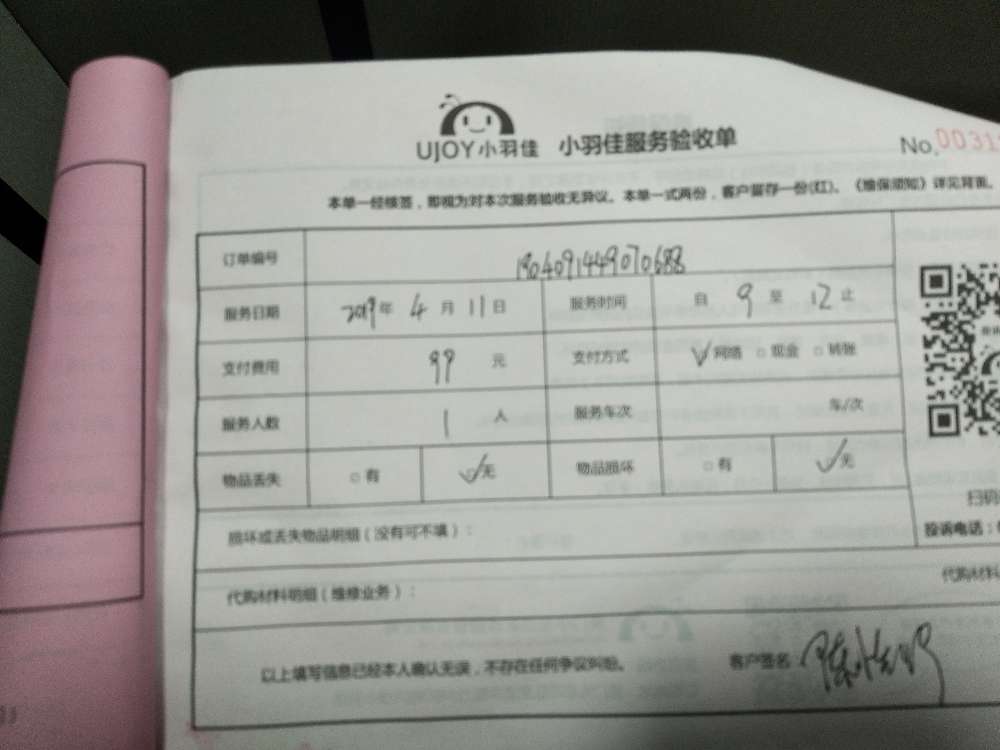 UJOY小羽佳 小羽佳服务验收单
No.0031
本单一经核签，即视为对本次服务验收无异议。本单一式两份，客户留存一份(红)。《维保须知》详见背面。
订单编号 1904091449070688
服务日期 2019年4月11日 服务时间 自9至12止
支付费用 99元 支付方式 ☑网络 □现金 □转账
服务人数 1人 服务车次 车/次
物品丢失 □有 ☑无 物品损坏 □有 ☑无
扫码
损坏或丢失物品明细（没有可不填）： 投诉电话：
代购材料明细（维修业务）： 代购材料
以上填写信息已经本人确认无误，不存在任何争议纠纷。 客户签名：